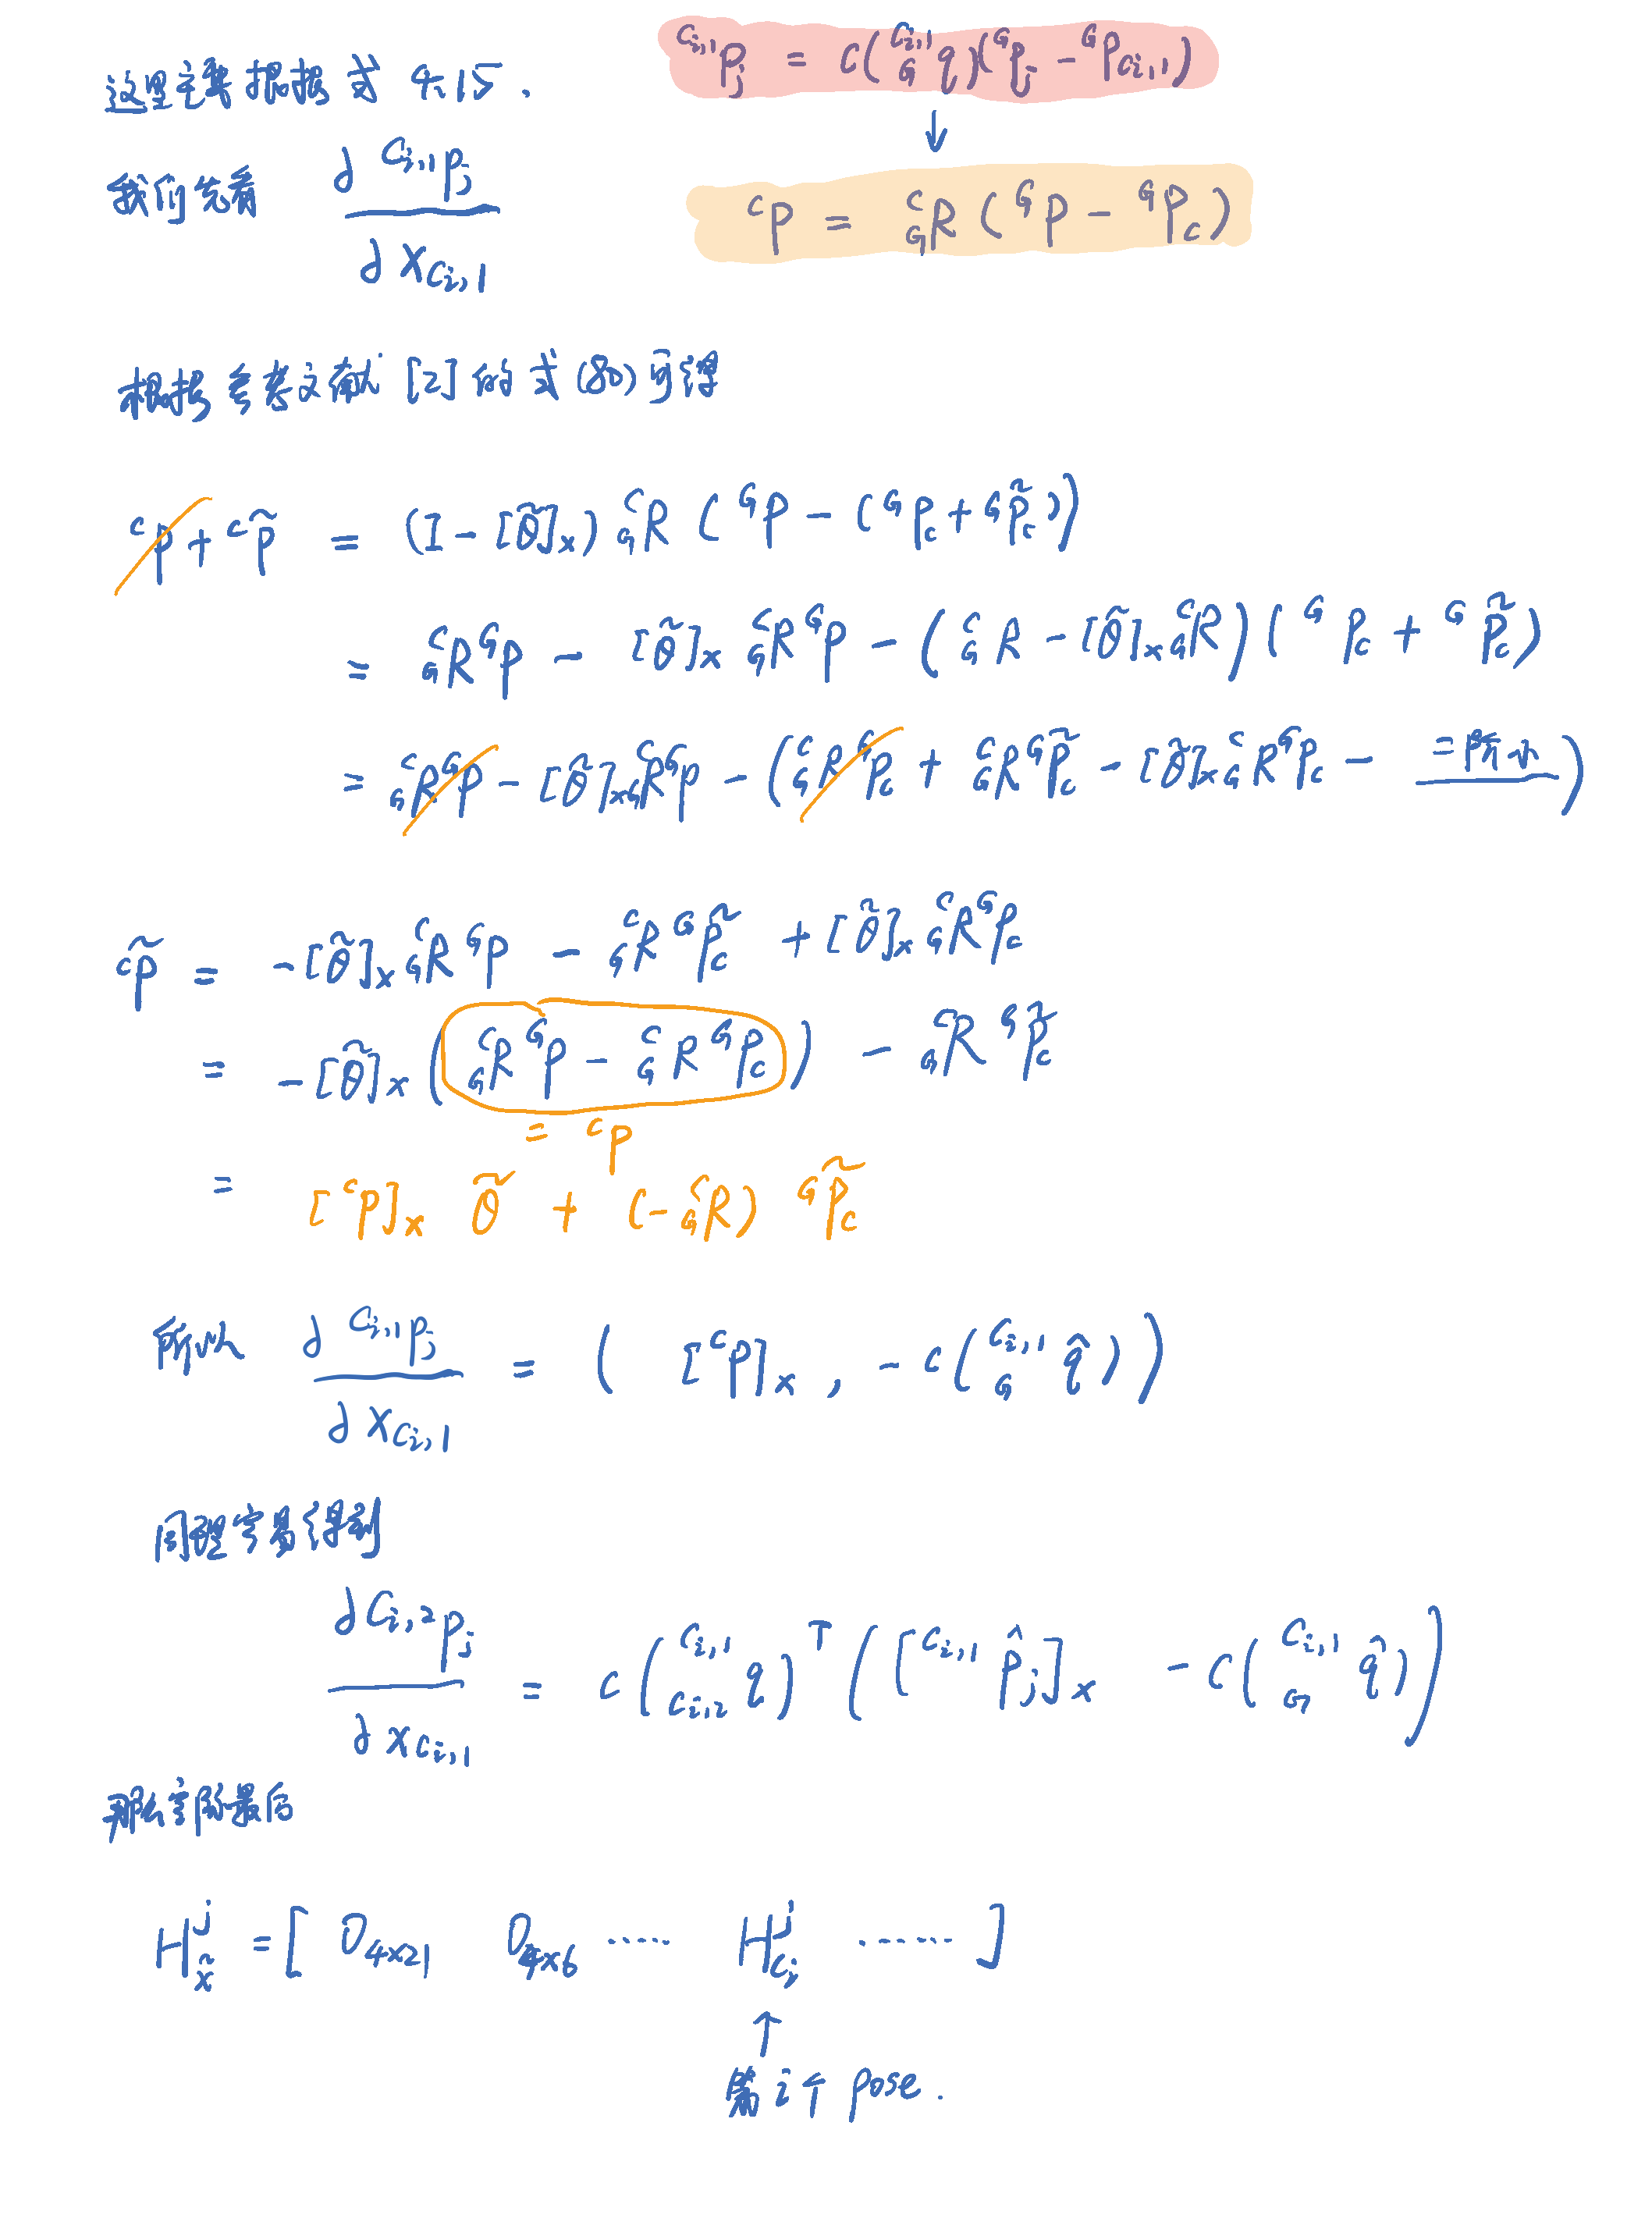 这里主要根据式 4.15.
^{C_{i,1}}p_j = C(^{C_{i,1}}_G q)(^G p_j - ^G p_{C_{i,1}})
↓
我们先看 ∂ ^{C_{i,1}}p_j / ∂ x_{C_{i,1}}
^C p = ^C_G R ( ^G p - ^G p_c )
根据参考文献 [2] 的式(80)可得
^C p + ^C p̃ = (I - [θ̃]_×) ^C_G R ( ^G p - ( ^G p_c + ^G p̃_c ) )
= ^C_G R ^G p - [θ̃]_× ^C_G R ^G p - ( ^C_G R - [θ̃]_× ^C_G R ) ( ^G p_c + ^G p̃_c )
= ^C_G R ^G p - [θ̃]_× ^C_G R ^G p - ( ^C_G R ^G p_c + ^C_G R ^G p̃_c - [θ̃]_× ^C_G R ^G p_c - 二阶小 )
^C p̃ = -[θ̃]_× ^C_G R ^G p - ^C_G R ^G p̃_c + [θ̃]_× ^C_G R ^G p_c
= -[θ̃]_× ( ^C_G R ^G p - ^C_G R ^G p_c ) - ^C_G R ^G p̃_c
= ^C p
= [^C p]_× θ̃ + (- ^C_G R) ^G p̃_c
所以 ∂ ^{C_{i,1}}p_j / ∂ x_{C_{i,1}} = ( [^C p]_× , - C(^{C_{i,1}}_G q̂) )
同理容易得到
∂ ^{C_{i,2}}p_j / ∂ x_{C_{i,1}} = C(^{C_{i,1}}_{C_{i,2}} q)^T ( [^{C_{i,1}} p̂_j]_× - C(^{C_{i,1}}_G q̂) )
那么实际最后
H^j_{x̃} = [ 0_{4×21} 0_{4×6} ····· H^j_{C_i} ······ ]
↑
第 i 个 pose.